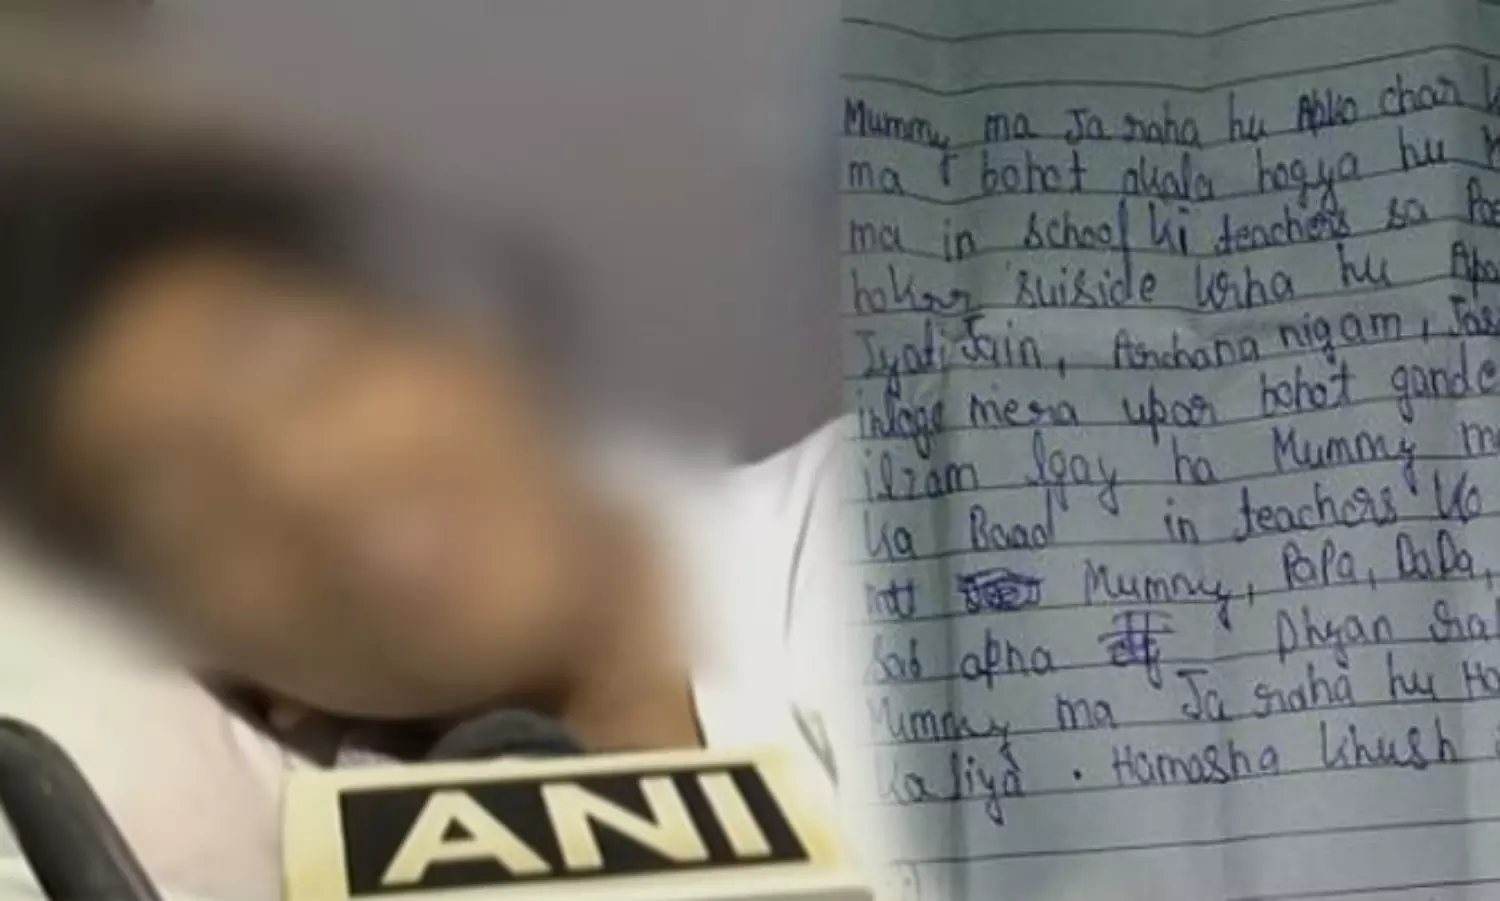 ANI
Mummy ma Ja raha hu Apko char
ma bohot akala hogya hu
ma in school ki teachers sa
hokrr suiside krha hu
Jyati Jain, Archana nigam,
inloge mera upar bohot gande
ilzam lgay ha Mummy
ka Baad in teachers ko
Mummy, PaPa, DaDa,
Sab apna Dhyan
Mummy ma Ja raha hu
ka liya . Hamasha khush